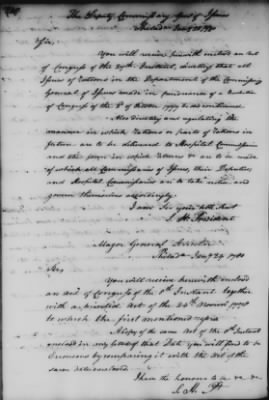 The Deputy Commissary Genl of Issues
Philada Jany 1781
Sir,
You will receive herewith enclosed an act
of Congress of the 20th Instant, directing that all
Issues of Rations in the Department of the Commissary
General of Issues made in pursuance of a Resolution
of Congress of the 8th of October 1777 be discontinued
Also directing and regulating the
manner in which Rations or parts of Rations in
future are to be delivered to Hospital Commissaries
and the form in which Returns &c are to be made
of which all Commissaries of Issues, their Deputies,
and Hospital Commissaries are to take notice and
govern themselves accordingly.
I am Sir your hble Servt
S. H. President
Major General
Philada Jany 24 1781
Sir,
You will receive herewith enclosed
an act of Congress of the 1st Instant together
with a printed Act of the 24th Novemr 1778
to which the first mentioned refers
A Copy of the same Act of the 1st Instant
enclosed in my letter of that Date you will find to be
Erroneous by comparing it with the Act of the
same
I have the honour to be &c &c
S. H. Pt